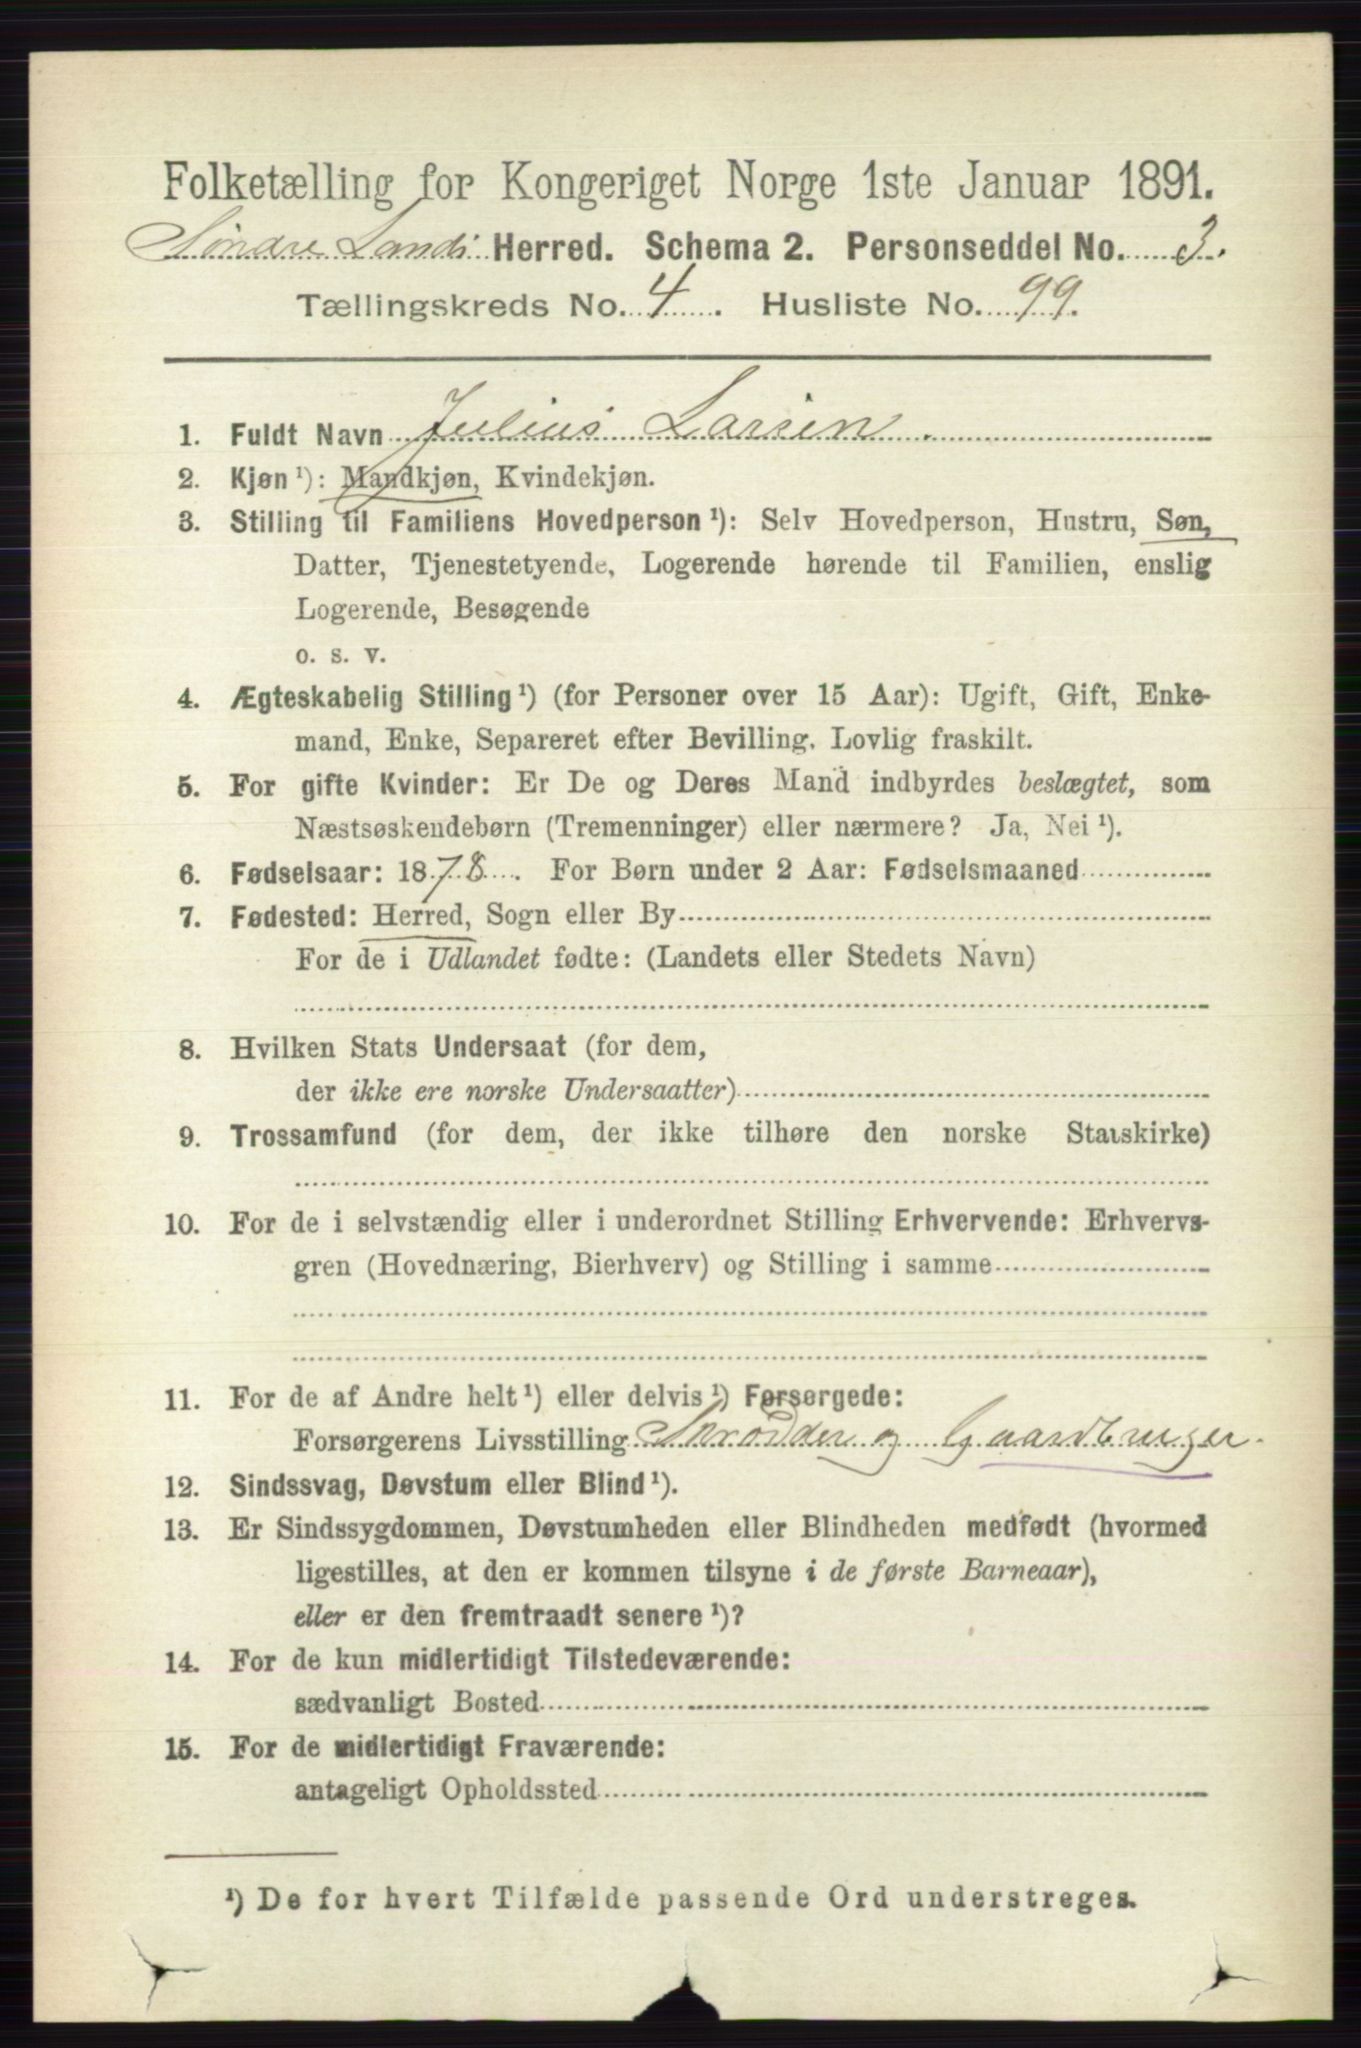 Folketælling for Kongeriget Norge 1ste Januar 1891.
Søndre Lands Herred. Schema 2. Personseddel No. 3.
Tællingskreds No. 4. Husliste No. 99.
1. Fuldt Navn Julius Larsen.
2. Kjøn ¹): Mandkjøn, Kvindekjøn.
3. Stilling til Familiens Hovedperson ¹): Selv Hovedperson, Hustru, Søn,
Datter, Tjenestetyende, Logerende hørende til Familien, enslig
Logerende, Besøgende
o. s. v.
4. Ægteskabelig Stilling ¹) (for Personer over 15 Aar): Ugift, Gift, Enke-
mand, Enke, Separeret efter Bevilling. Lovlig fraskilt.
5. For gifte Kvinder: Er De og Deres Mand indbyrdes beslægtet, som
Næstsøskendebørn (Tremenninger) eller nærmere? Ja, Nei ¹).
6. Fødselsaar: 1878. For Børn under 2 Aar: Fødselsmaaned
7. Fødested: Herred, Sogn eller By
For de i Udlandet fødte: (Landets eller Stedets Navn)
8. Hvilken Stats Undersaat (for dem,
der ikke ere norske Undersaatter)
9. Trossamfund (for dem, der ikke tilhøre den norske Statskirke)
10. For de i selvstændig eller i underordnet Stilling Erhvervende: Erhvervs-
gren (Hovednæring, Bierhverv) og Stilling i samme
11. For de af Andre helt ¹) eller delvis ¹) Forsørgede:
Forsørgerens Livsstilling Skrædder og Gaardbruger.
12. Sindssvag, Døvstum eller Blind ¹).
13. Er Sindssygdommen, Døvstumheden eller Blindheden medfødt (hvormed
ligestilles, at den er kommen tilsyne i de første Barneaar),
eller er den fremtraadt senere ¹)?
14. For de kun midlertidigt Tilstedeværende:
sædvanligt Bosted
15. For de midlertidigt Fraværende:
antageligt Opholdssted
¹) De for hvert Tilfælde passende Ord understreges.